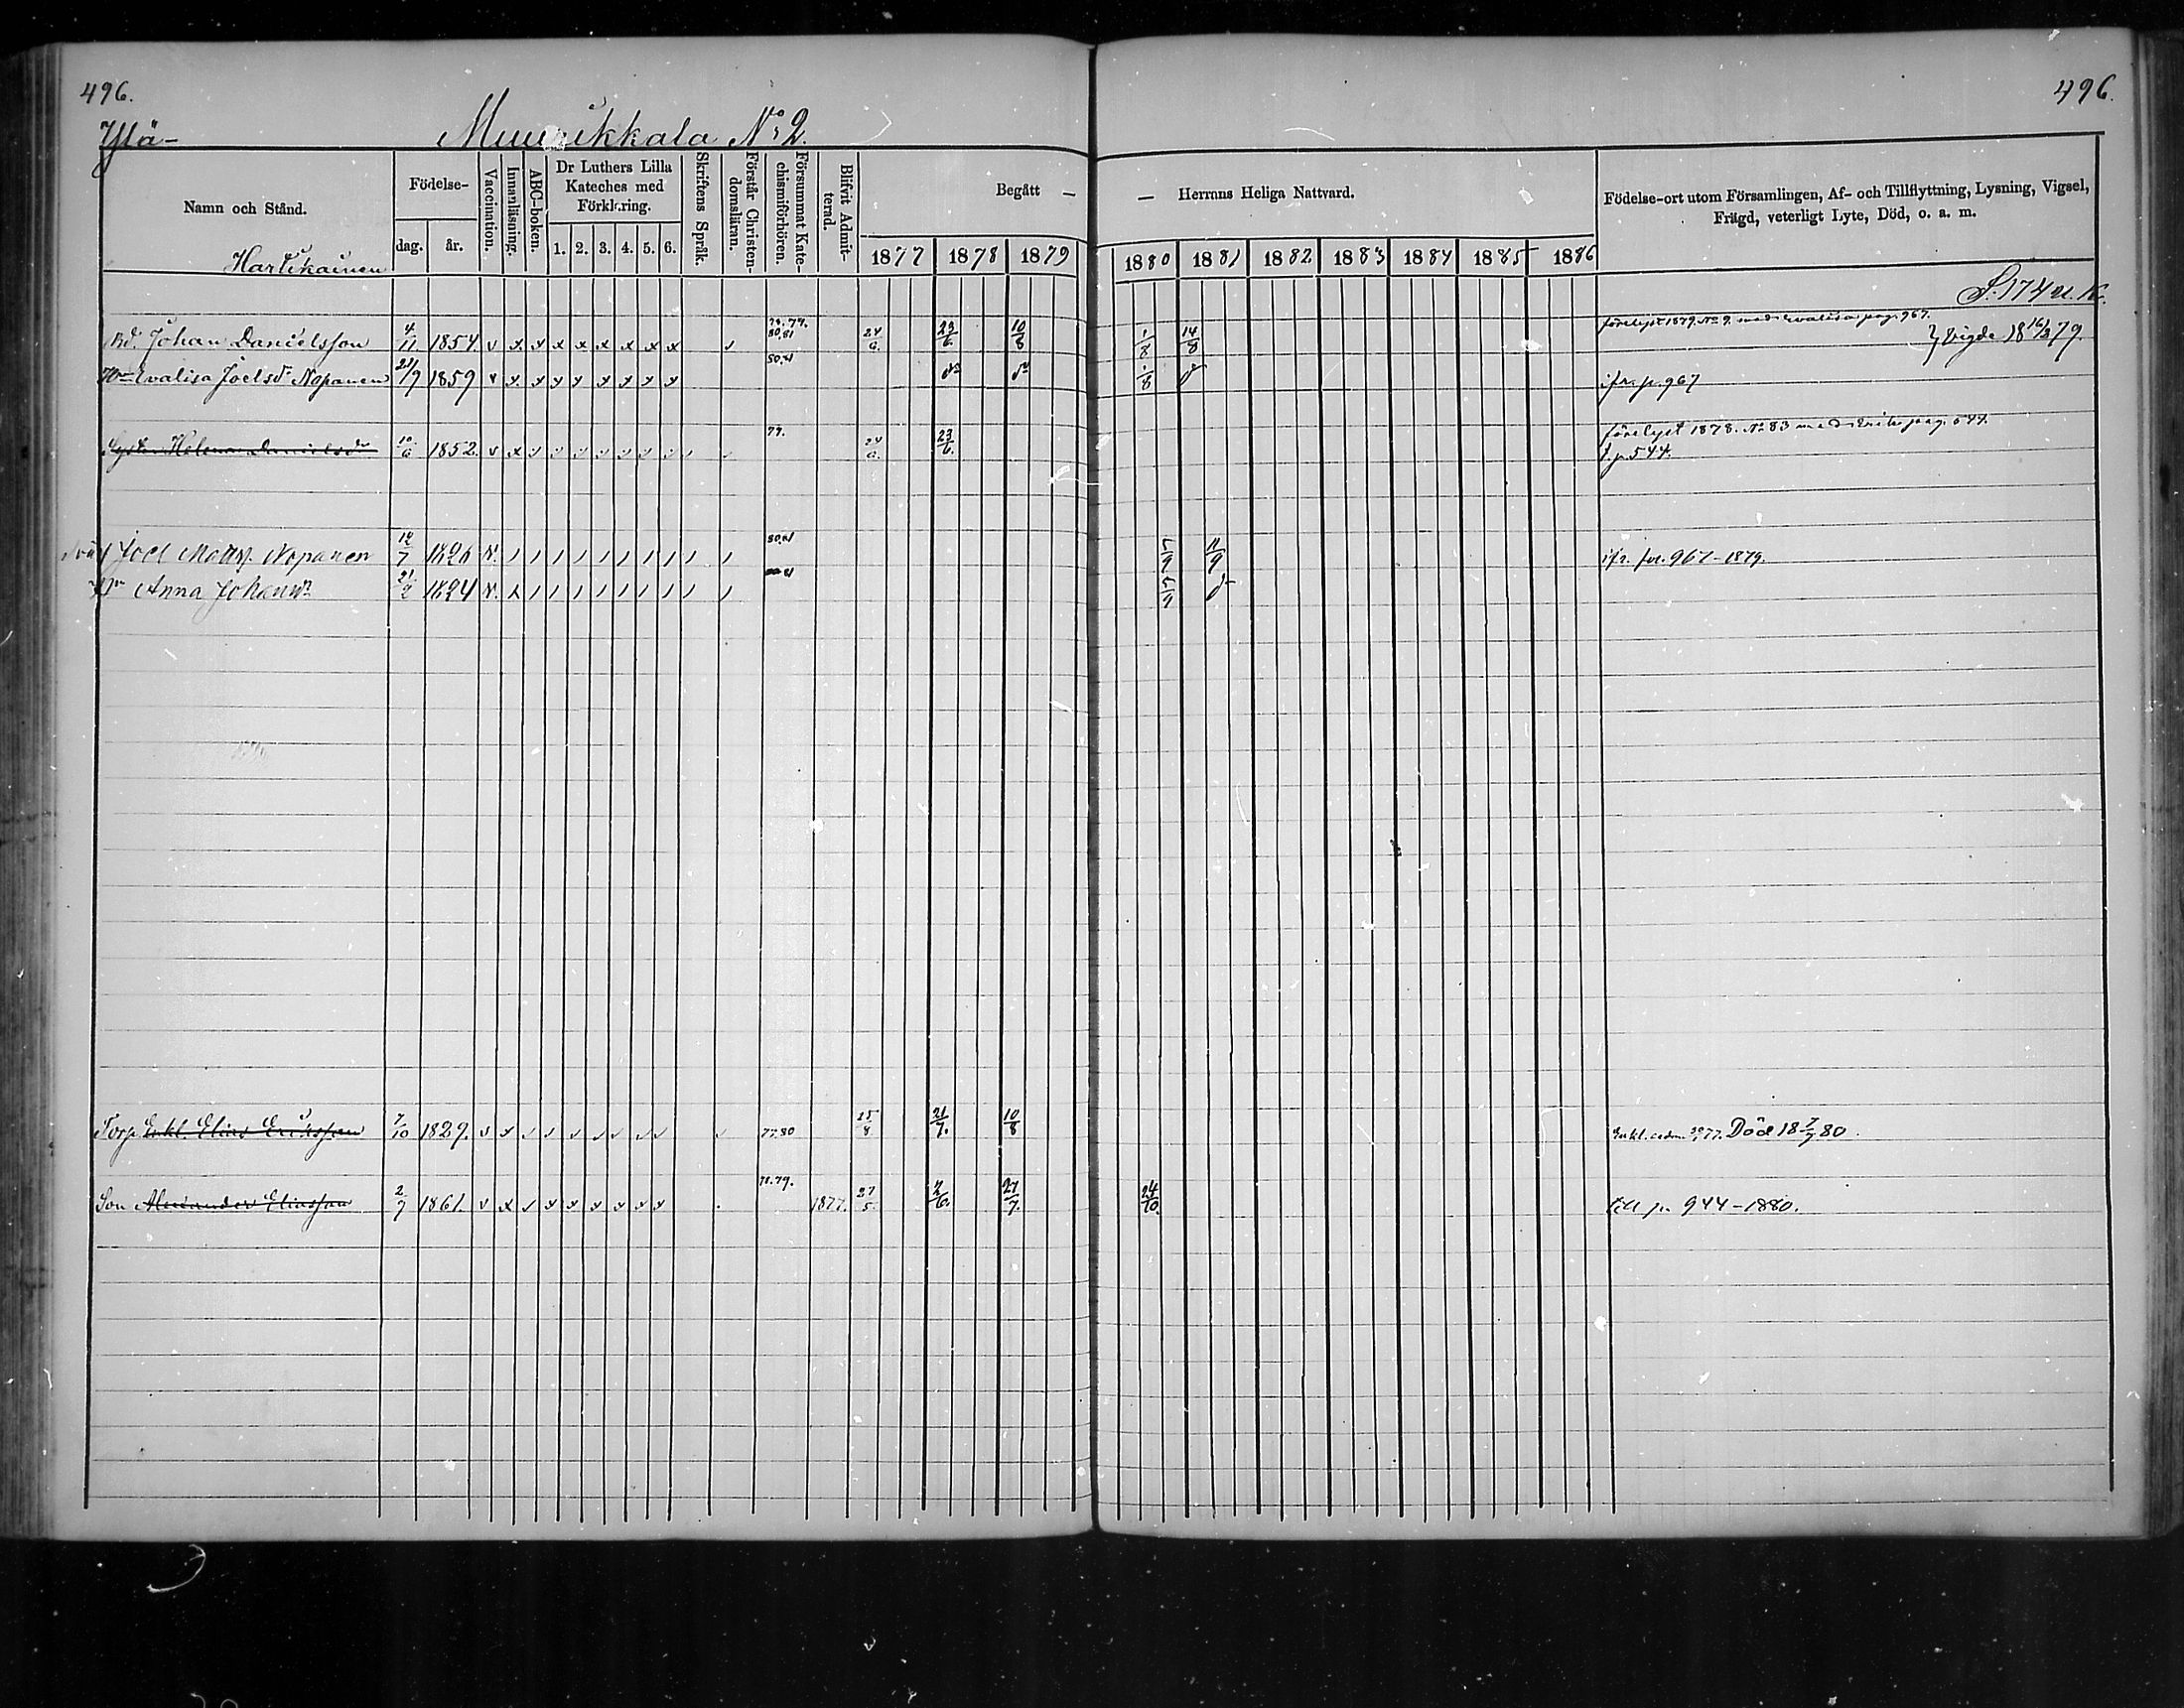 496.
496.
Ylä- Muurikkala No 2.
Namn och Stånd.
Födelse-
dag. år.
Vaccination.
Innanläsning.
ABC-boken.
Dr Luthers Lilla
Kateches med
Förklaring.
1. 2. 3. 4. 5. 6.
Skriftens Språk.
Förstår Christen-
domsläran.
Försummat Kate-
chismiförhören.
Blifvit Admit-
terad.
Begått —
1877 1878 1879
— Herrans Heliga Nattvard.
1880 1881 1882 1883 1884 1885 1886
Födelse-ort utom Församlingen, Af- och Tillflyttning, Lysning, Vigsel,
Frägd, veterligt Lyte, Död, o. a. m.
Hartikainen
S. 174 u. K.
Bd. Johan Danielsson 4/11 1854. v x x x x x x x x 80,81 24/6 23/6 10/8 1/8 14/8 förelyst 1879. No 9. med Evalisa pag. 967. } Vigde 18 16/3 79.
Hu Evalisa Joelsdr Nopanen 21/9 1859 v x x x x x x x x 80,81 1/8 ifr. p. 967
Syster Helena Danielsdr 10/6 1852. v x 79. 24/6 23/6 förelyst 1878. No 83 med Erik pag. 544.
t. p. 544.
Joel Matts. Nopanen 12/7 1826 v. 80,81 5/9 11/9 ifr. fol. 967-1879.
Hu Anna Johansdr 21/2 1824 v. 81 5/9
Torp. Enkl. Elias Eriksson 7/10 1829. 77.80 25/8 21/7. 10/8 Död 18 7/7 80.
Son Alexander Eliasson 2/9 1861. 78.79. 1877. 27/5. 2/6. 27/7. 24/10. till p. 944-1880.